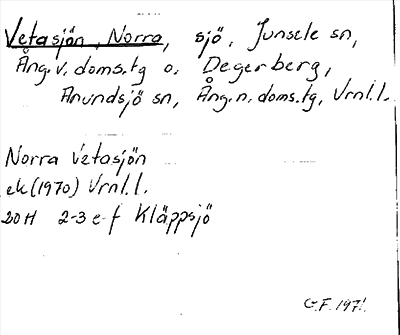 Vetasjön, Norra, sjö, Junsele sn,
Ång. v. doms.tg o. Degerberg,
Anundsjö sn, Ång. n. doms.tg, Vrnl.l.
Norra Vetasjön
ek (1970) Vrnl.l.
20H 2-3 e-f Kläppsjö
G.F. 1971.